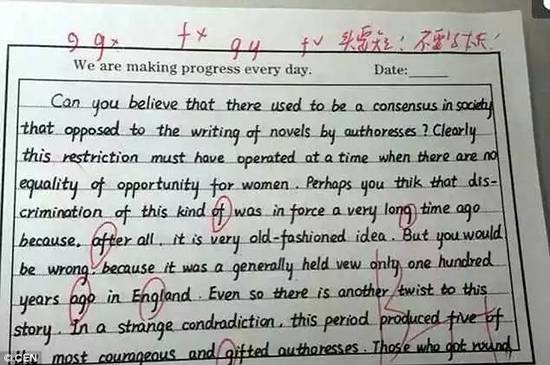 g gx fx gy fv 头要短: 不要太长!
We are making progress every day. Date:
Can you believe that there used to be a consensus in society
that opposed to the writing of novels by authoresses? Clearly
this restriction must have operated at a time when there are no
equality of opportunity for women. Perhaps you thik that dis-
crimination of this kind of was in force a very long time ago
because, after all, it is very old-fashioned idea. But you would
be wrong, because it was a generally held vew only one hundred
years ago in England. Even so there is another twist to this
story. In a strange condradiction, this period produced five of
the most courageous and gifted authoresses. Those who got round
©CEN